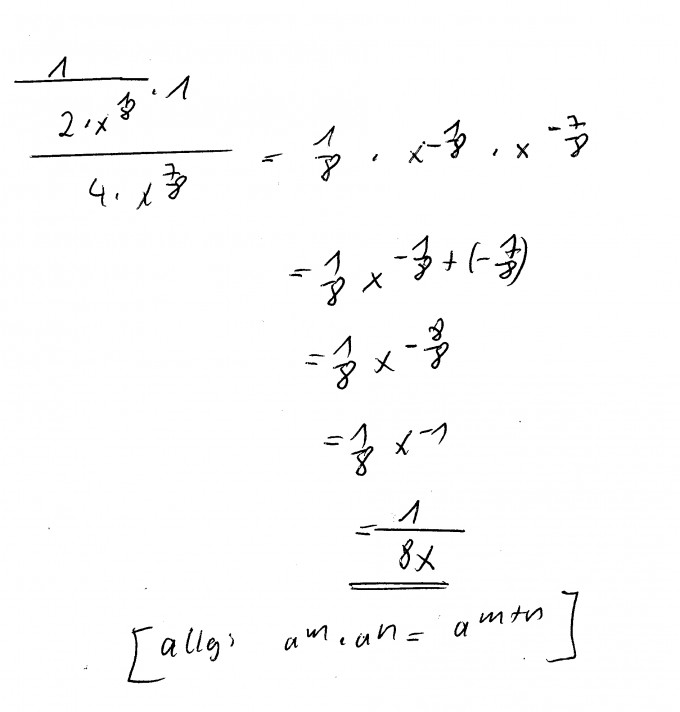 1/(2·x^(1/8)) · 1
/(4·x^(7/8)) = 1/8 · x^(-1/8) · x^(-7/8)
= 1/8 x^(-1/8+(-7/8))
= 1/8 x^(-8/8)
= 1/8 x^(-1)
= 1/(8x)
[allg: a^m · a^n = a^(m+n)]